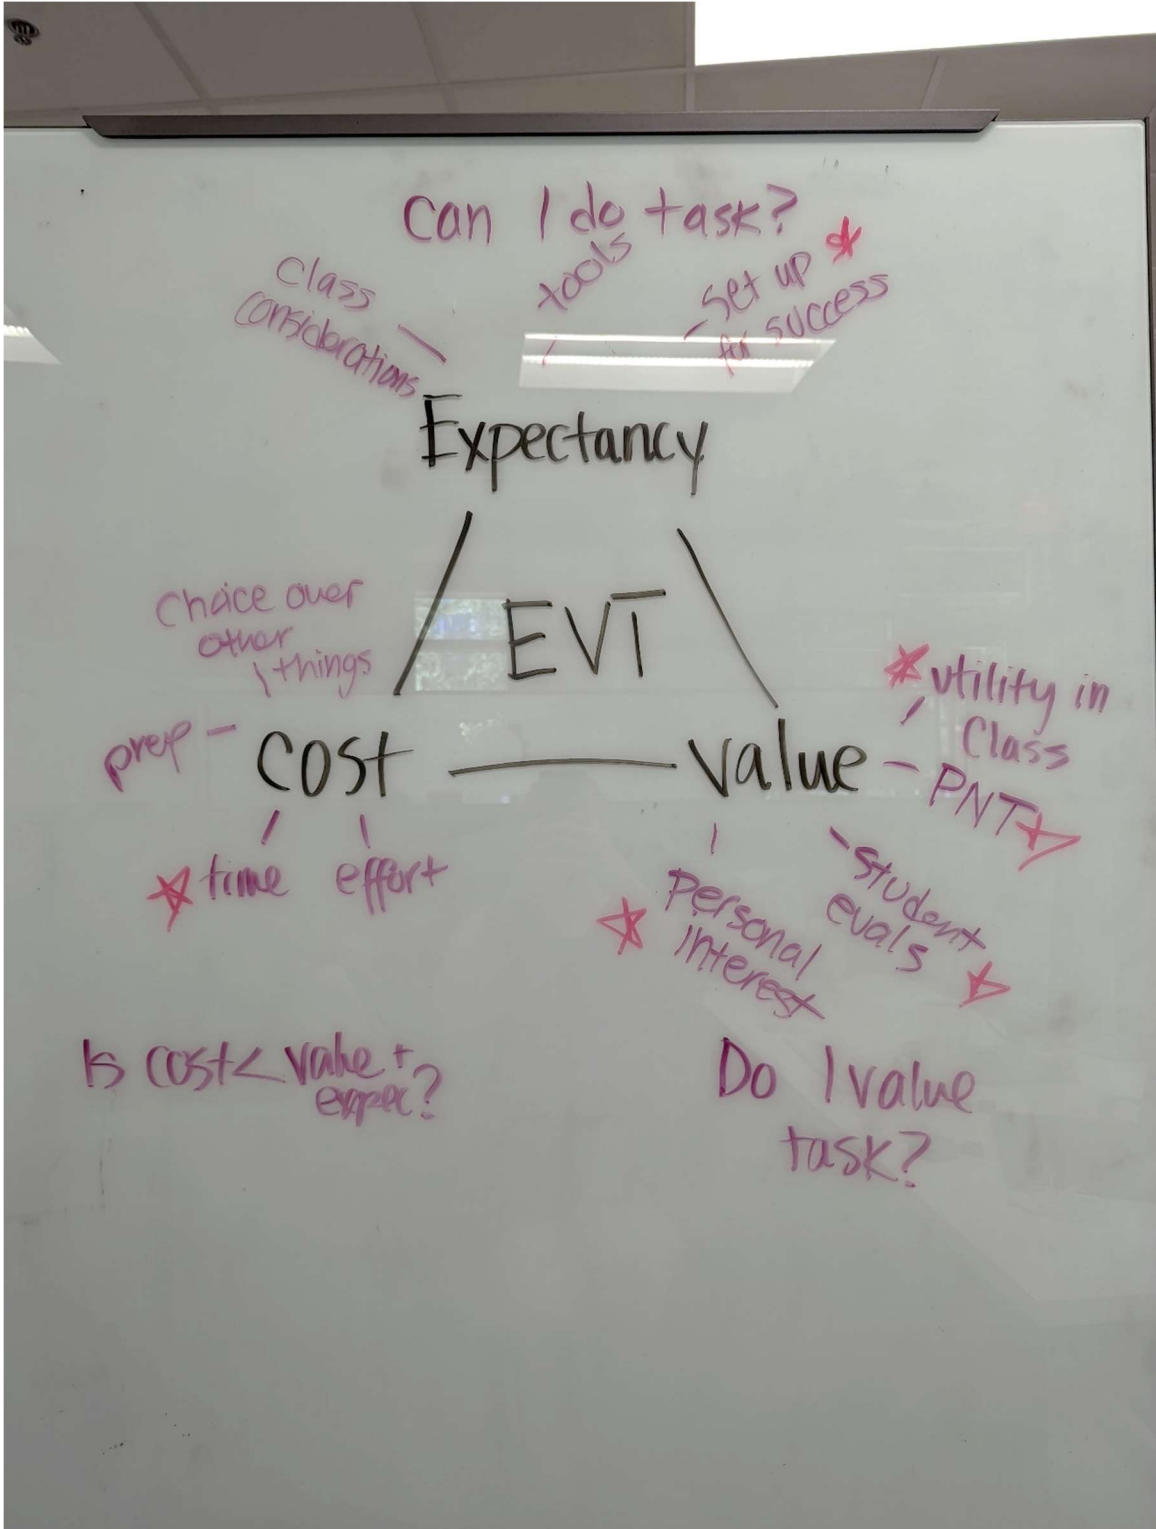 Can I do task?
Class
considerations
tools
set up
for success
Expectancy
EVT
Choice over
other
things
prep
Cost
time
effort
value
utility in
Class
PNT
Personal
interest
student
evals
Is cost < value +
expec?
Do I value
task?